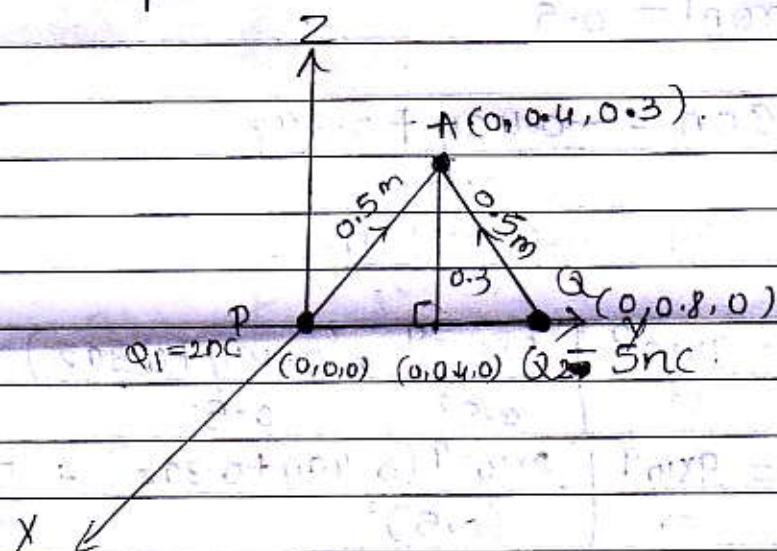 Z
A (0, 0.4, 0.3).
0.5m
0.5m
0.3
P
Q (0, 0.8, 0)
Y
Q₁ = 2nC
(0,0,0)
(0,0.4,0)
Q₂ = 5nC
X